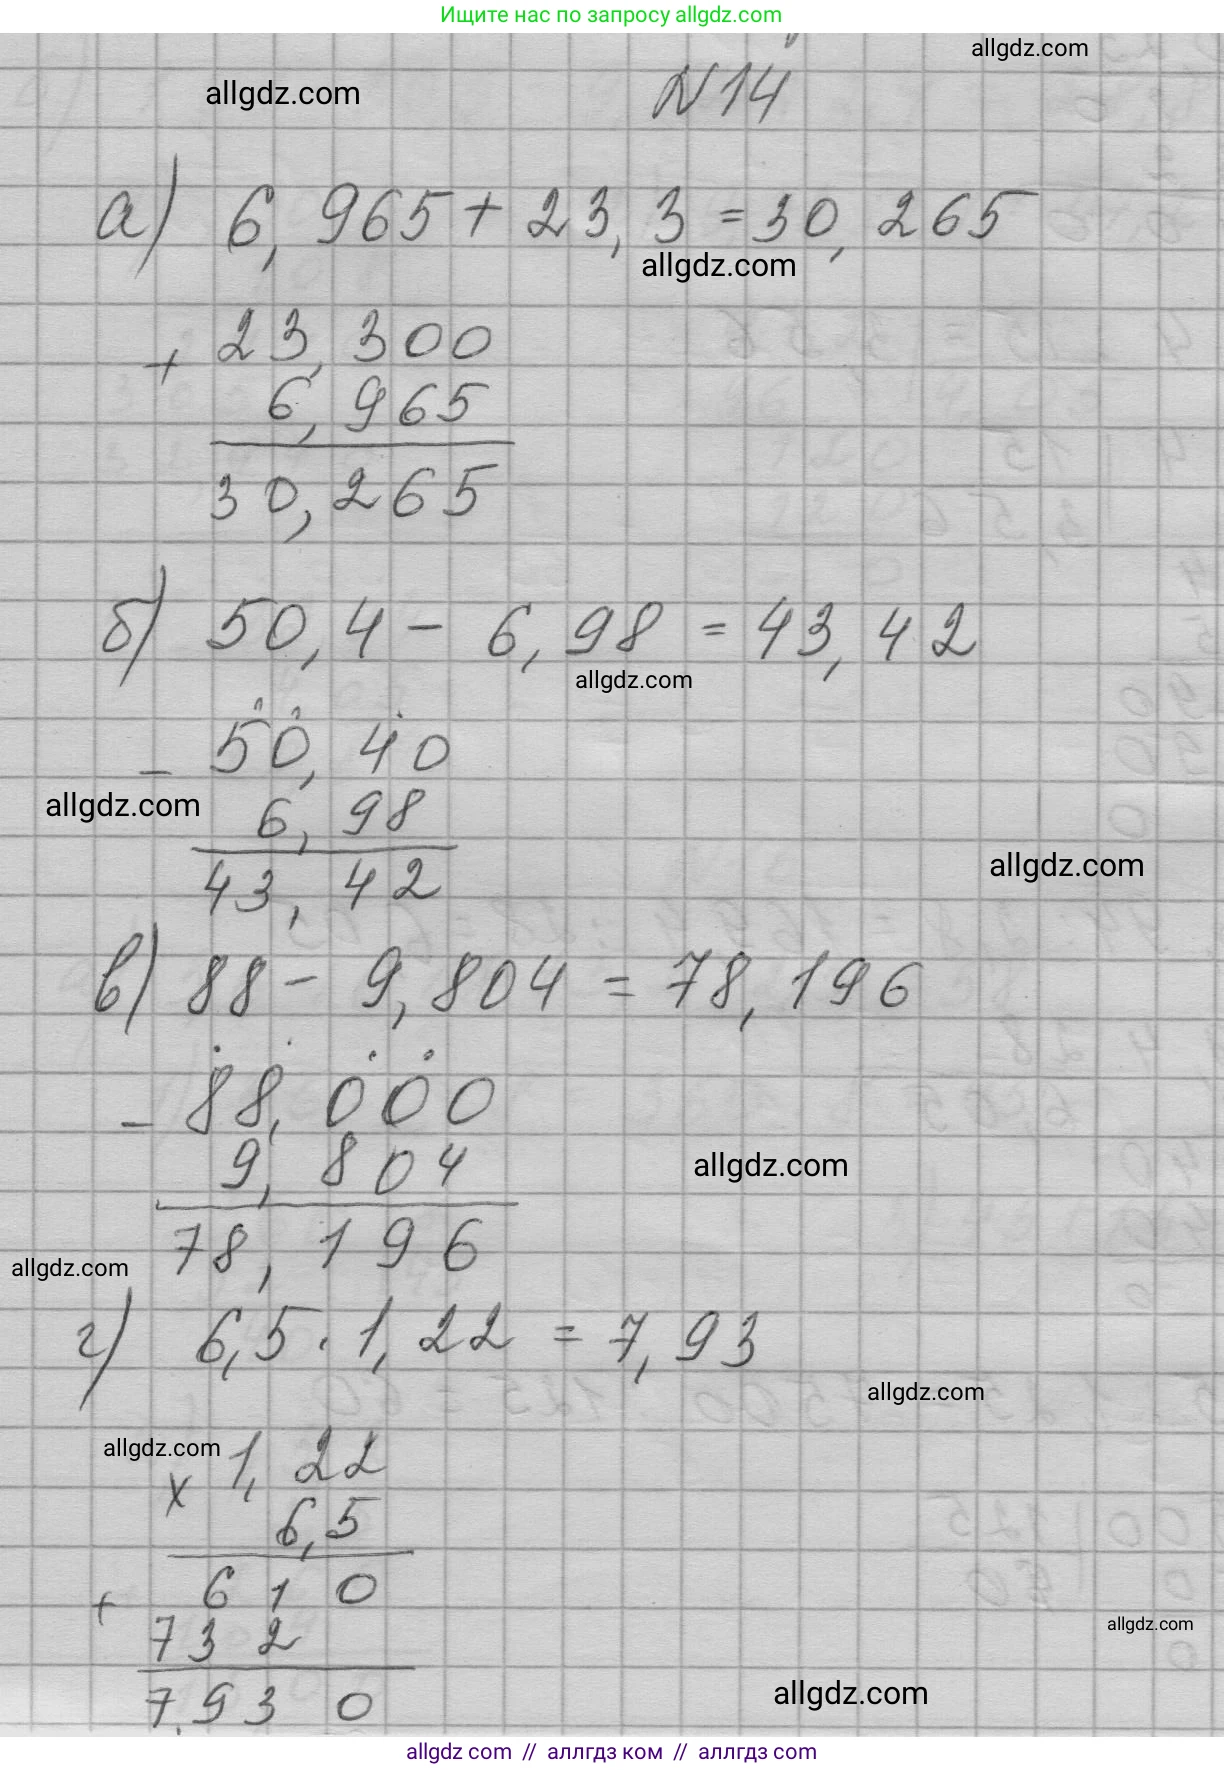 Ищите нас по запросу allgdz.com
allgdz.com
allgdz.com
N14
а) 6,965 + 23,3 = 30,265
allgdz.com
+ 23,300
6,965
30,265
б) 50,4 - 6,98 = 43,42
allgdz.com
- 50,40
allgdz.com
6,98
allgdz.com
43,42
в) 88 - 9,804 = 78,196
- 88,000
9,804
allgdz.com
78,196
allgdz.com
г) 6,5 · 1,22 = 7,93
allgdz.com
allgdz.com
x 1,22
6,5
610
+
732
allgdz.com
7,930
allgdz.com
allgdz com // аллгдз ком // аллгдз com